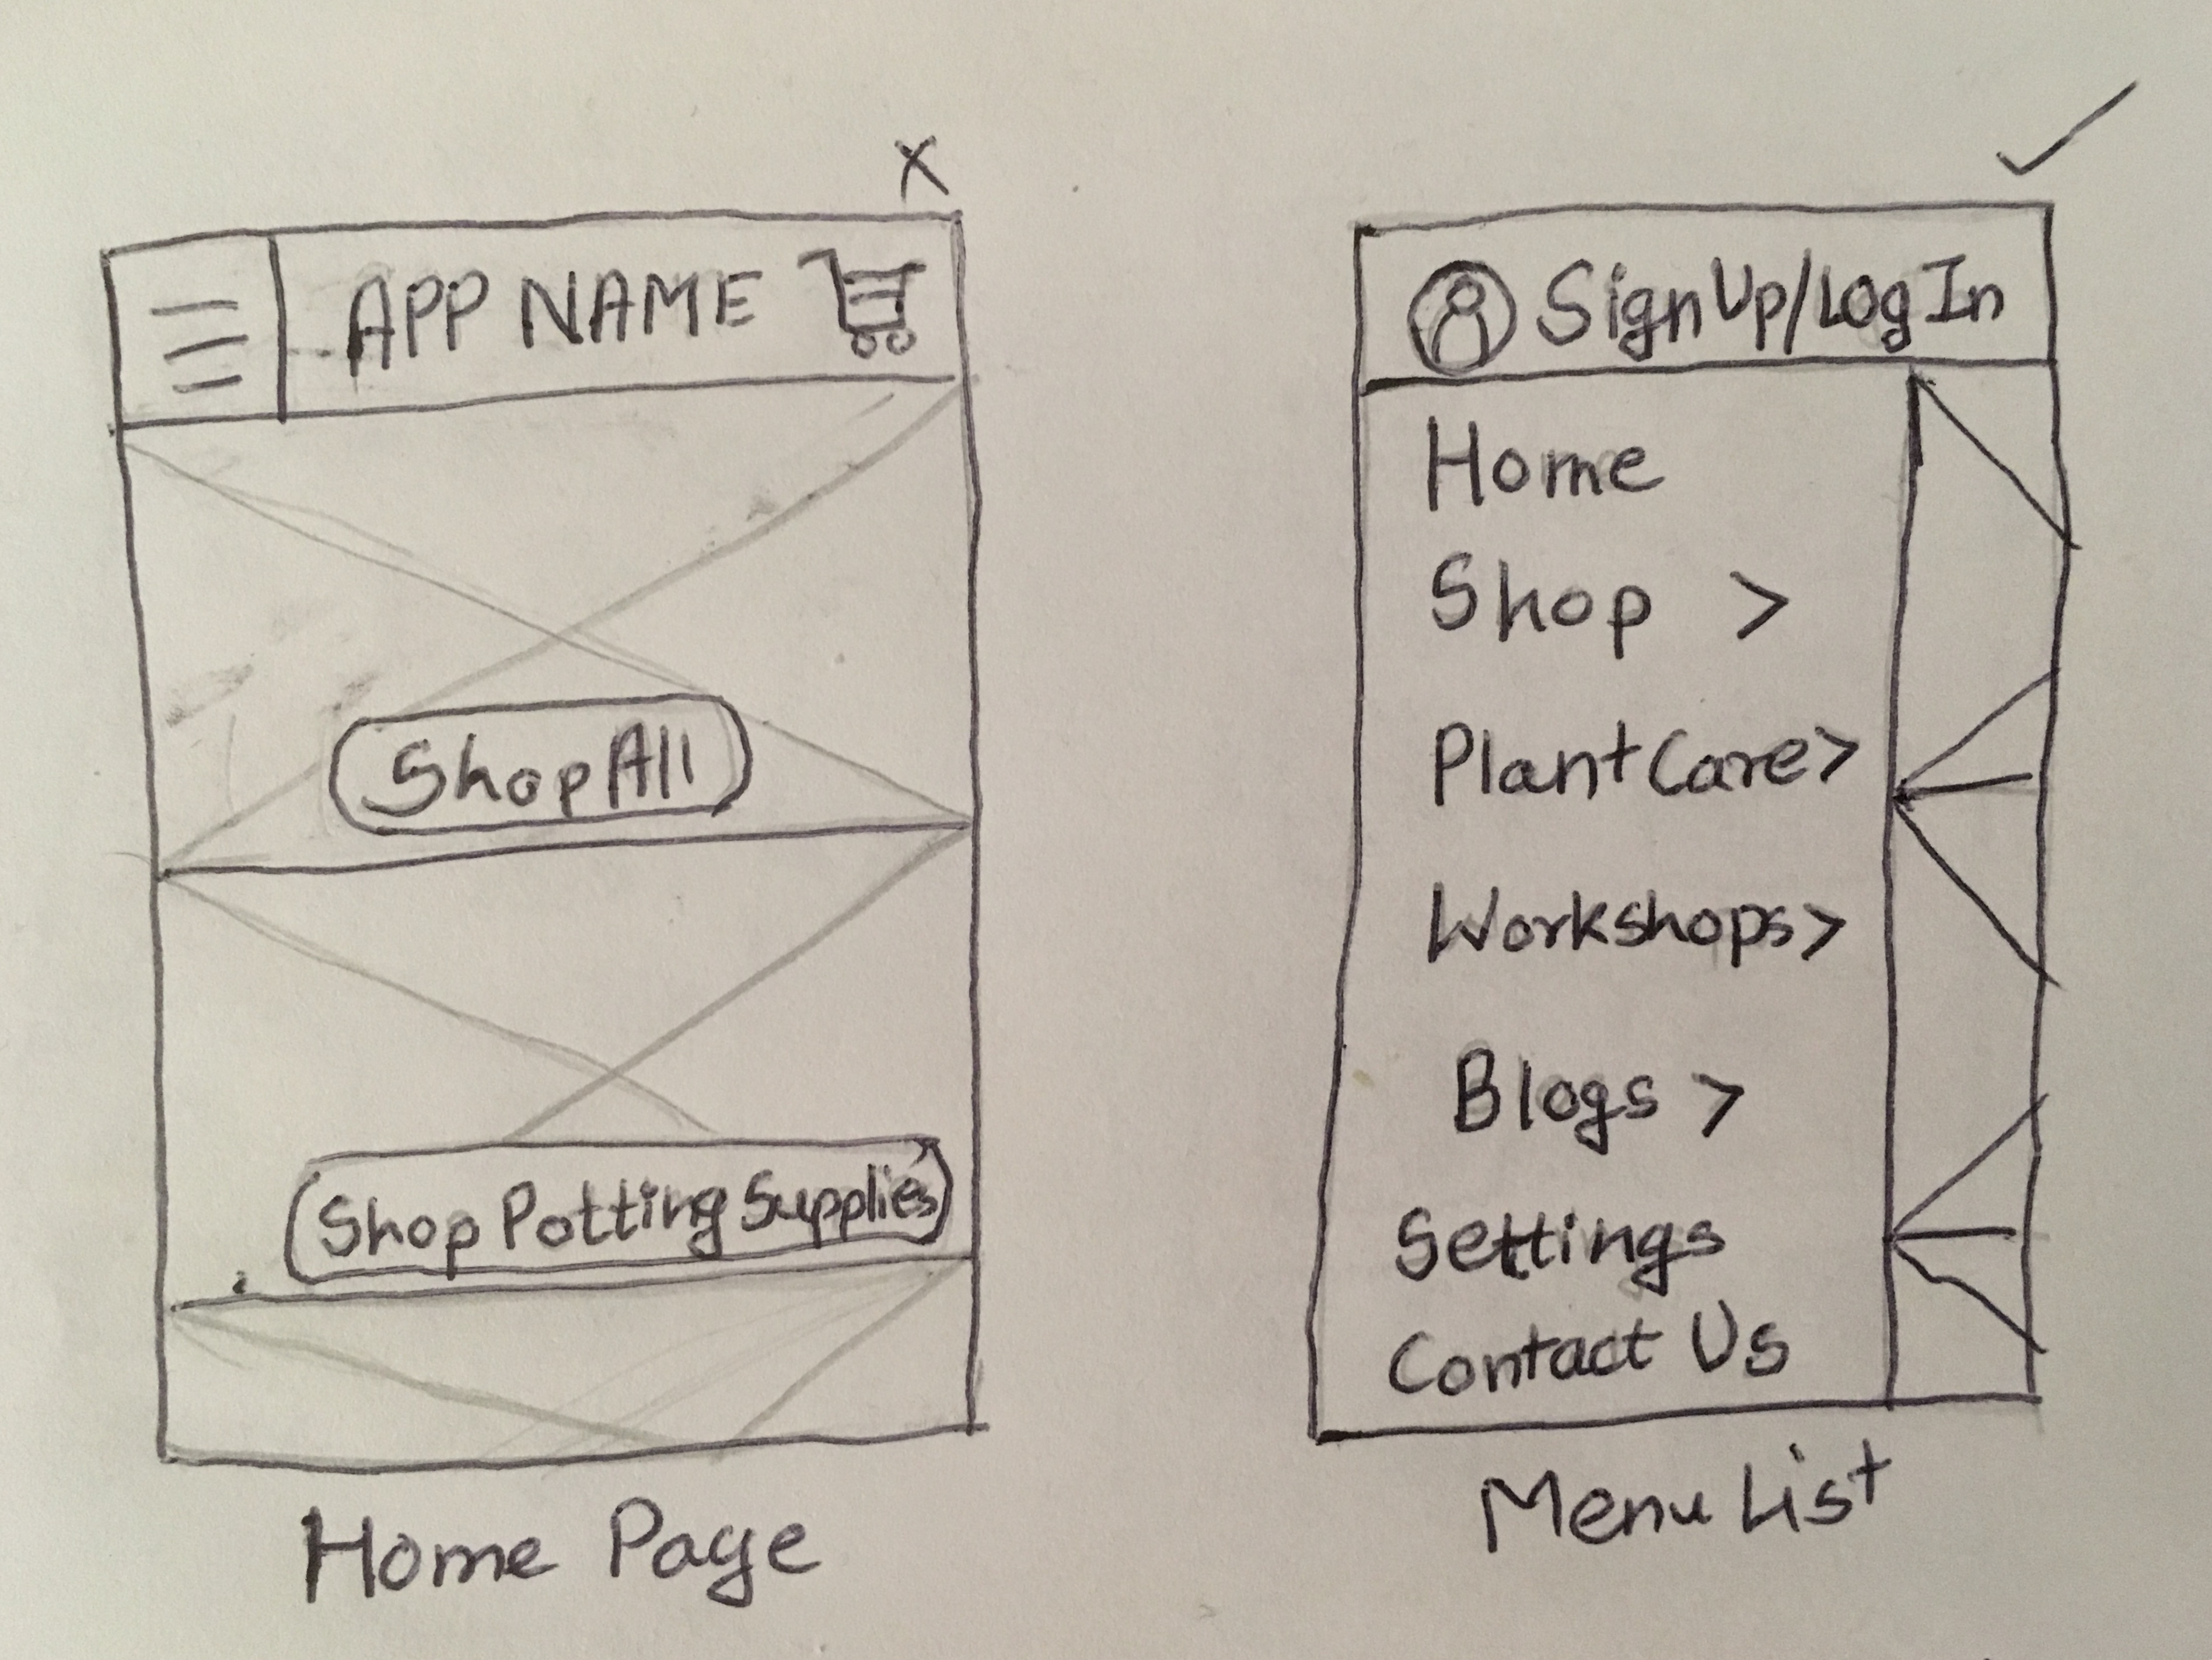 APP NAME
Shop All
Shop Potting Supplies
Home Page
Sign Up/Log In
Home
Shop >
Plant Care >
Workshops >
Blogs >
Settings
Contact Us
Menu List